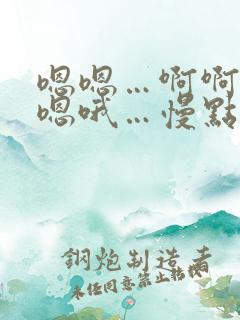 嗯嗯…啊啊
嗯哦…慢點
鋼炮制造者
未经同意禁止转载